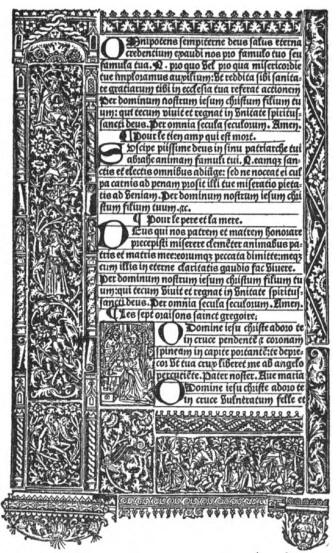 OMnipotens sempiterne deus salus eterna
credentium exaudi nos pro famulo tuo seu
famula tua. N. pro quo vel pro qua misericordie
tue imploramus auxilium: vt reddita sibi sanita-
te gratiarum tibi in ecclesia tua referat actionem
Per dominum nostrum iesum christum filium tu
um: qui tecum viuit et regnat in vnitate spiritus-
sancti deus. Per omnia secula seculorum. Amen.
¶ Pour le tien amy qui est mort.
SVscipe piissime deus in sinu patriarche tui
abrahe animam famuli tui. N. eamqz san-
ctis et electis omnibus adiuge: sed ne noceat ei cul
pa carnis ad penam prosit illi tue miseratio pieta-
tis ad veniam. Per dominum nostrum iesum chri
stum filium tuum. &c.
¶ Pour le pere et la mere.
DEus qui nos patrem et matrem honorare
precepisti miserere clemēter animabus pa-
tris et matris mee: eorumqz peccata dimitte: meqz
cum illis in eterne claritatis gaudio fac viuere.
Per dominum nostrum iesum christum filium tu
um: qui tecum viuit et regnat in vnitate spiritus-
sancti deus. Per omnia secula seculorum. Amen.
¶ Les sept oraisons sainct gregoire:
O Domine iesu christe adoro te
in cruce pendentē & coronam
spineam in capite portantē: te depre-
cor vt tua crux liberet me ab angelo
percutiēte. Pater noster. Aue maria
O Domine iesu christe adoro te
in cruce vulneratum felle et